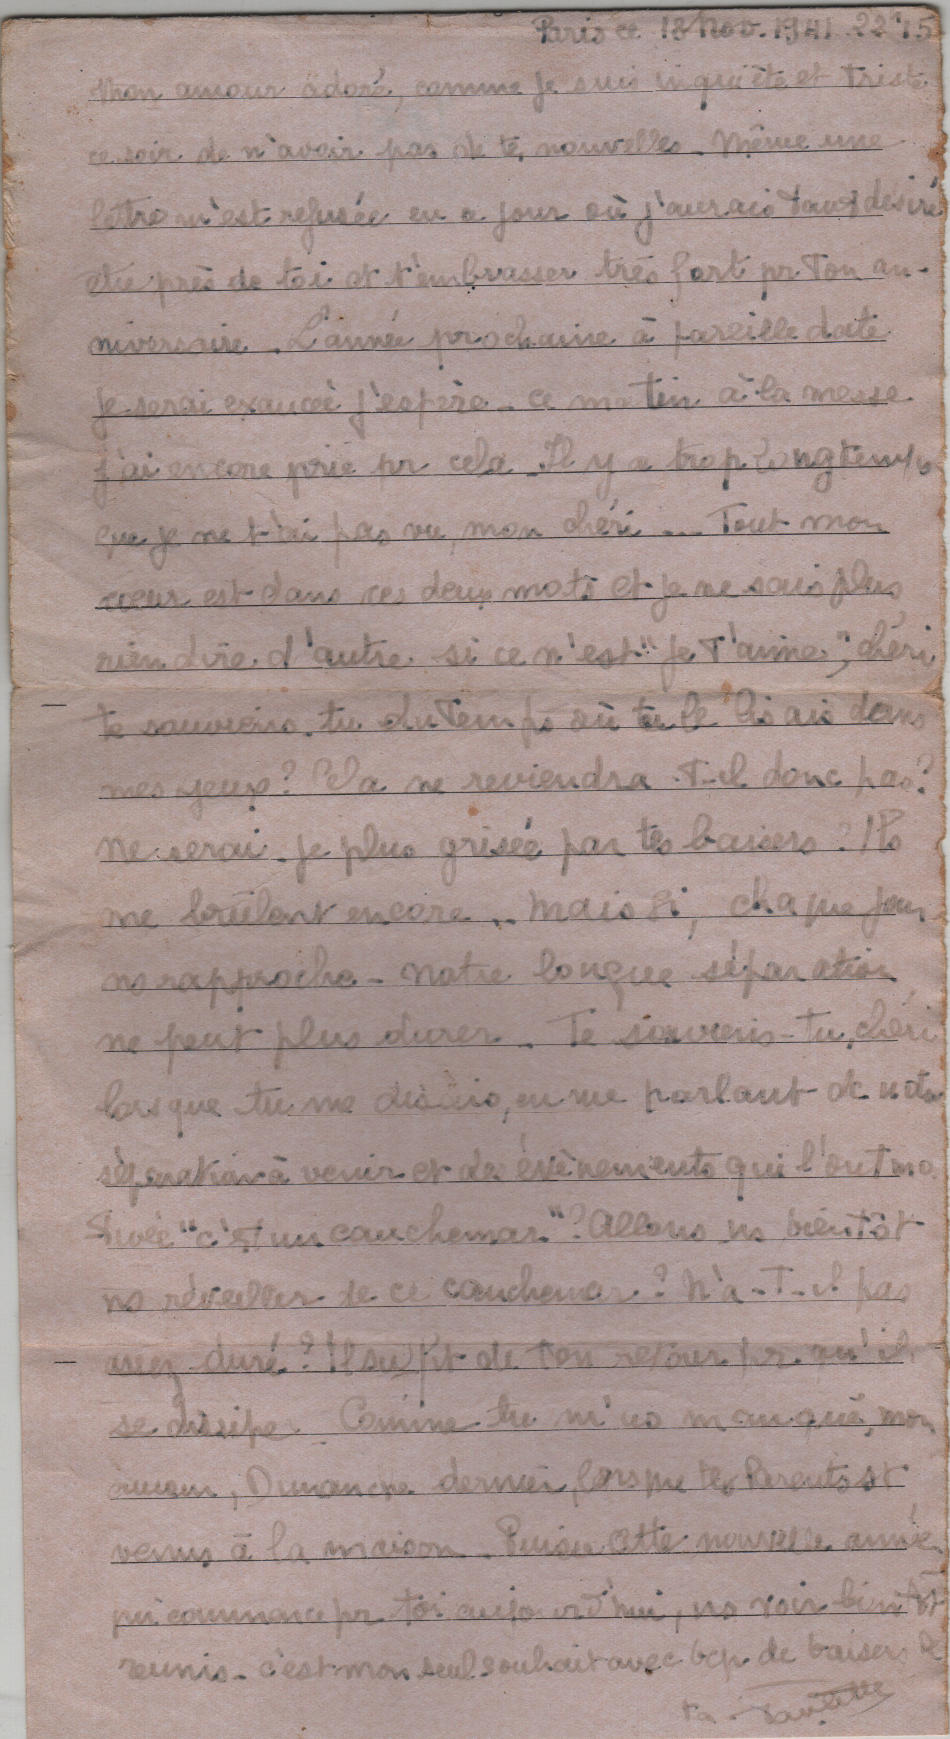 Paris ce 18 Nov. 1941 22h15
Mon amour adoré, comme je suis inquiète et triste
ce soir de n'avoir pas de tes nouvelles - Même une
lettre m'est refusée en ce jour où j'aurais tant désiré
être près de toi et t'embrasser très fort pr ton an-
niversaire - L'année prochaine à pareille date
je serai exaucée j'espère - ce matin à la messe
j'ai encore prié pr cela - Il y a trop longtemps
que je ne t'ai pas vu, mon chéri ... Tout mon
cœur est dans ces deux mots et je ne sais plus
rien dire d'autre si ce n'est "Je t'aime", chéri
te souviens-tu du temps où tu le lisais dans
mes yeux ? Cela ne reviendra-t-il donc pas ?
Ne serai-je plus grisée par tes baisers ? Ils
me brûlent encore ... Mais si, chaque jour
ns rapproche - Notre longue séparation
ne peut plus durer - Te souviens-tu, chéri
lorsque tu me disais, en me parlant de notre
séparation à venir et des évènements qui l'ont mo
tivée "c'est un cauchemar" ? Allons ns bientôt
ns réveiller de ce cauchemar ? N'a-t-il pas
assez duré ? Il suffit de ton retour pr qu'il
se dissipe - Comme tu m'as manqué, mon
amour, Dimanche dernier, lorsque tes Parents st
venus à la maison - Puisse cette nouvelle année
qui commence pr toi aujourd'hui, ns voir bientôt
réunis - c'est mon seul souhait avec bcp de baisers de
ta Paulette